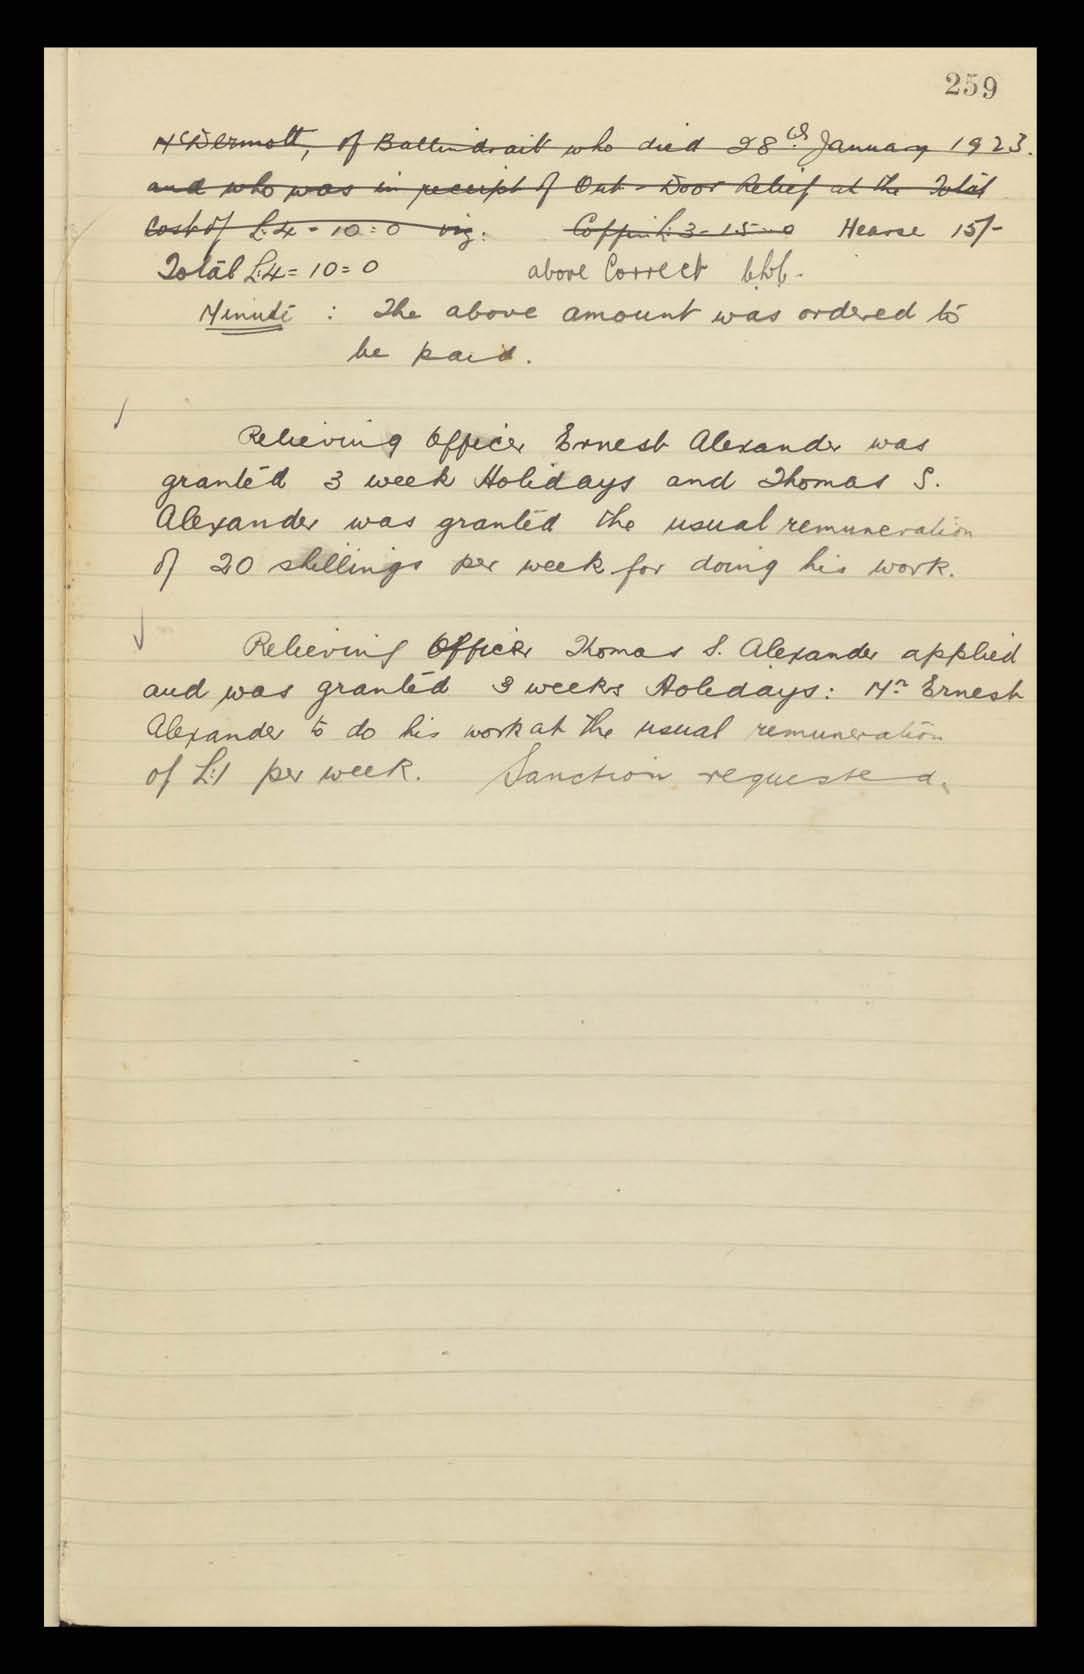 259
McDermott, of Ballindrait who died 28th January 1923.
and who was in receipt of Out-Door Relief at the Total
Cost of £:4=10:0 viz: Coffin £:3-15-0 Hearse 15/-
Total £:4=10=0 above Correct
Minute : The above amount was ordered to
be paid.
Relieving Officer Ernest Alexander was
granted 3 week Holidays and Thomas S.
Alexander was granted the usual remuneration
of 20 shillings per week for doing his work.
Relieving Officer Thomas S. Alexander applied
and was granted 3 weeks Holidays: Mr Ernest
Alexander to do his work at the usual remuneration
of £:1 per week. Sanction requested.